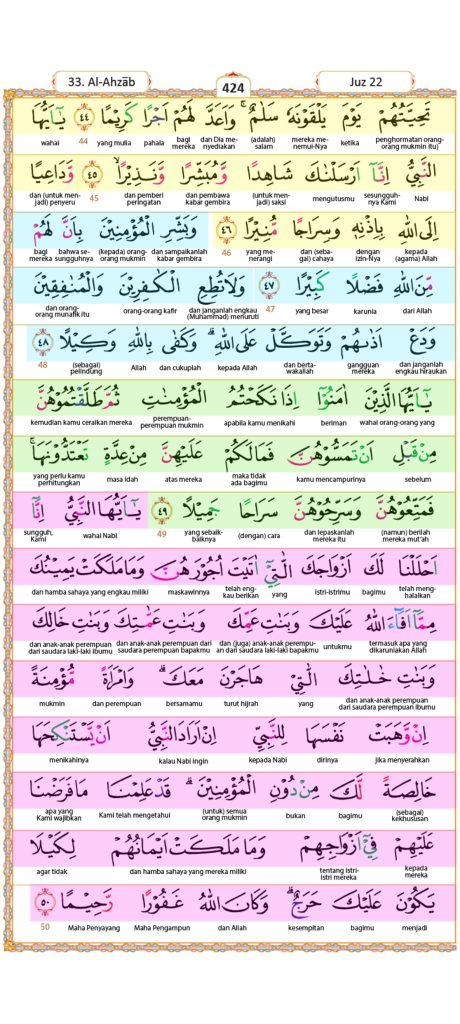 33. Al-Ahzāb
424
Juz 22
تَحِيَّتُهُمْ يَوْمَ يَلْقَوْنَهٗ سَلٰمٌ ۚ وَاَعَدَّ لَهُمْ اَجْرًا كَرِيْمًا ٤٤ يٰٓاَيُّهَا
penghormatan orang-orang mukmin itu) ketika mereka menemui-Nya (adalah) salam dan Dia menyediakan bagi mereka pahala yang mulia 44 wahai
النَّبِيُّ اِنَّآ اَرْسَلْنٰكَ شَاهِدًا وَّمُبَشِّرًا وَّنَذِيْرًا ۙ ٤٥ وَّدَاعِيًا
Nabi sesungguhnya Kami mengutusmu (untuk menjadi) saksi dan pembawa kabar gembira dan pemberi peringatan 45 dan (untuk menjadi) penyeru
اِلَى اللّٰهِ بِاِذْنِهٖ وَسِرَاجًا مُّنِيْرًا ٤٦ وَبَشِّرِ الْمُؤْمِنِيْنَ بِاَنَّ لَهُمْ
kepada (agama) Allah dengan izin-Nya dan (sebagai) cahaya yang menerangi 46 dan sampaikanlah kabar gembira (kepada) orang-orang mukmin bahwa sesungguhnya bagi mereka
مِّنَ اللّٰهِ فَضْلًا كَبِيْرًا ٤٧ وَلَا تُطِعِ الْكٰفِرِيْنَ وَالْمُنٰفِقِيْنَ
dari Allah karunia yang besar 47 dan janganlah engkau (Muhammad) menuruti orang-orang kafir dan orang-orang munafik itu
وَدَعْ اَذٰىهُمْ وَتَوَكَّلْ عَلَى اللّٰهِ ۗ وَكَفٰى بِاللّٰهِ وَكِيْلًا ٤٨
dan janganlah engkau hiraukan gangguan mereka dan bertawakallah kepada Allah dan cukuplah Allah (sebagai) pelindung 48
يٰٓاَيُّهَا الَّذِيْنَ اٰمَنُوْٓا اِذَا نَكَحْتُمُ الْمُؤْمِنٰتِ ثُمَّ طَلَّقْتُمُوْهُنَّ
wahai orang-orang yang beriman apabila kamu menikahi perempuan-perempuan mukmin kemudian kamu ceraikan mereka
مِنْ قَبْلِ اَنْ تَمَسُّوْهُنَّ فَمَا لَكُمْ عَلَيْهِنَّ مِنْ عِدَّةٍ تَعْتَدُّوْنَهَا ۚ
sebelum kamu mencampurinya maka tidak ada bagimu atas mereka masa idah yang perlu kamu perhitungkan
فَمَتِّعُوْهُنَّ وَسَرِّحُوْهُنَّ سَرَاحًا جَمِيْلًا ٤٩ يٰٓاَيُّهَا النَّبِيُّ اِنَّآ
(namun) berilah mereka mut'ah dan lepaskanlah mereka itu (dengan) cara yang sebaik-baiknya 49 wahai Nabi sungguh, Kami
اَحْلَلْنَا لَكَ اَزْوَاجَكَ الّٰتِيْٓ اٰتَيْتَ اُجُوْرَهُنَّ وَمَا مَلَكَتْ يَمِيْنُكَ
telah menghalalkan bagimu istri-istrimu yang telah engkau berikan maskawinnya dan hamba sahaya yang engkau miliki
مِمَّآ اَفَاۤءَ اللّٰهُ عَلَيْكَ وَبَنٰتِ عَمِّكَ وَبَنٰتِ عَمّٰتِكَ وَبَنٰتِ خَالِكَ
termasuk apa yang dikaruniakan Allah untukmu dan (juga) anak-anak perempuan dari saudara laki-laki bapakmu dan anak-anak perempuan dari saudara perempuan bapakmu dan anak-anak perempuan dari saudara laki-laki ibumu
وَبَنٰتِ خٰلٰتِكَ الّٰتِيْ هَاجَرْنَ مَعَكَ ۗ وَامْرَاَةً مُّؤْمِنَةً
dan anak-anak perempuan dari saudara perempuan ibumu yang turut hijrah bersamamu dan perempuan mukmin
اِنْ وَّهَبَتْ نَفْسَهَا لِلنَّبِيِّ اِنْ اَرَادَ النَّبِيُّ اَنْ يَّسْتَنْكِحَهَا
jika menyerahkan dirinya kepada Nabi kalau Nabi ingin menikahinya
خَالِصَةً لَّكَ مِنْ دُوْنِ الْمُؤْمِنِيْنَ ۗ قَدْ عَلِمْنَا مَا فَرَضْنَا
(sebagai) kekhususan bagimu bukan (untuk) semua orang mukmin Kami telah mengetahui apa yang Kami wajibkan
عَلَيْهِمْ فِيْٓ اَزْوَاجِهِمْ وَمَا مَلَكَتْ اَيْمَانُهُمْ لِكَيْلَا
kepada mereka tentang istri-istri mereka dan hamba sahaya yang mereka miliki agar tidak
يَكُوْنَ عَلَيْكَ حَرَجٌ ۗ وَكَانَ اللّٰهُ غَفُوْرًا رَّحِيْمًا ٥٠
menjadi bagimu kesempitan dan Allah Maha Pengampun Maha Penyayang 50